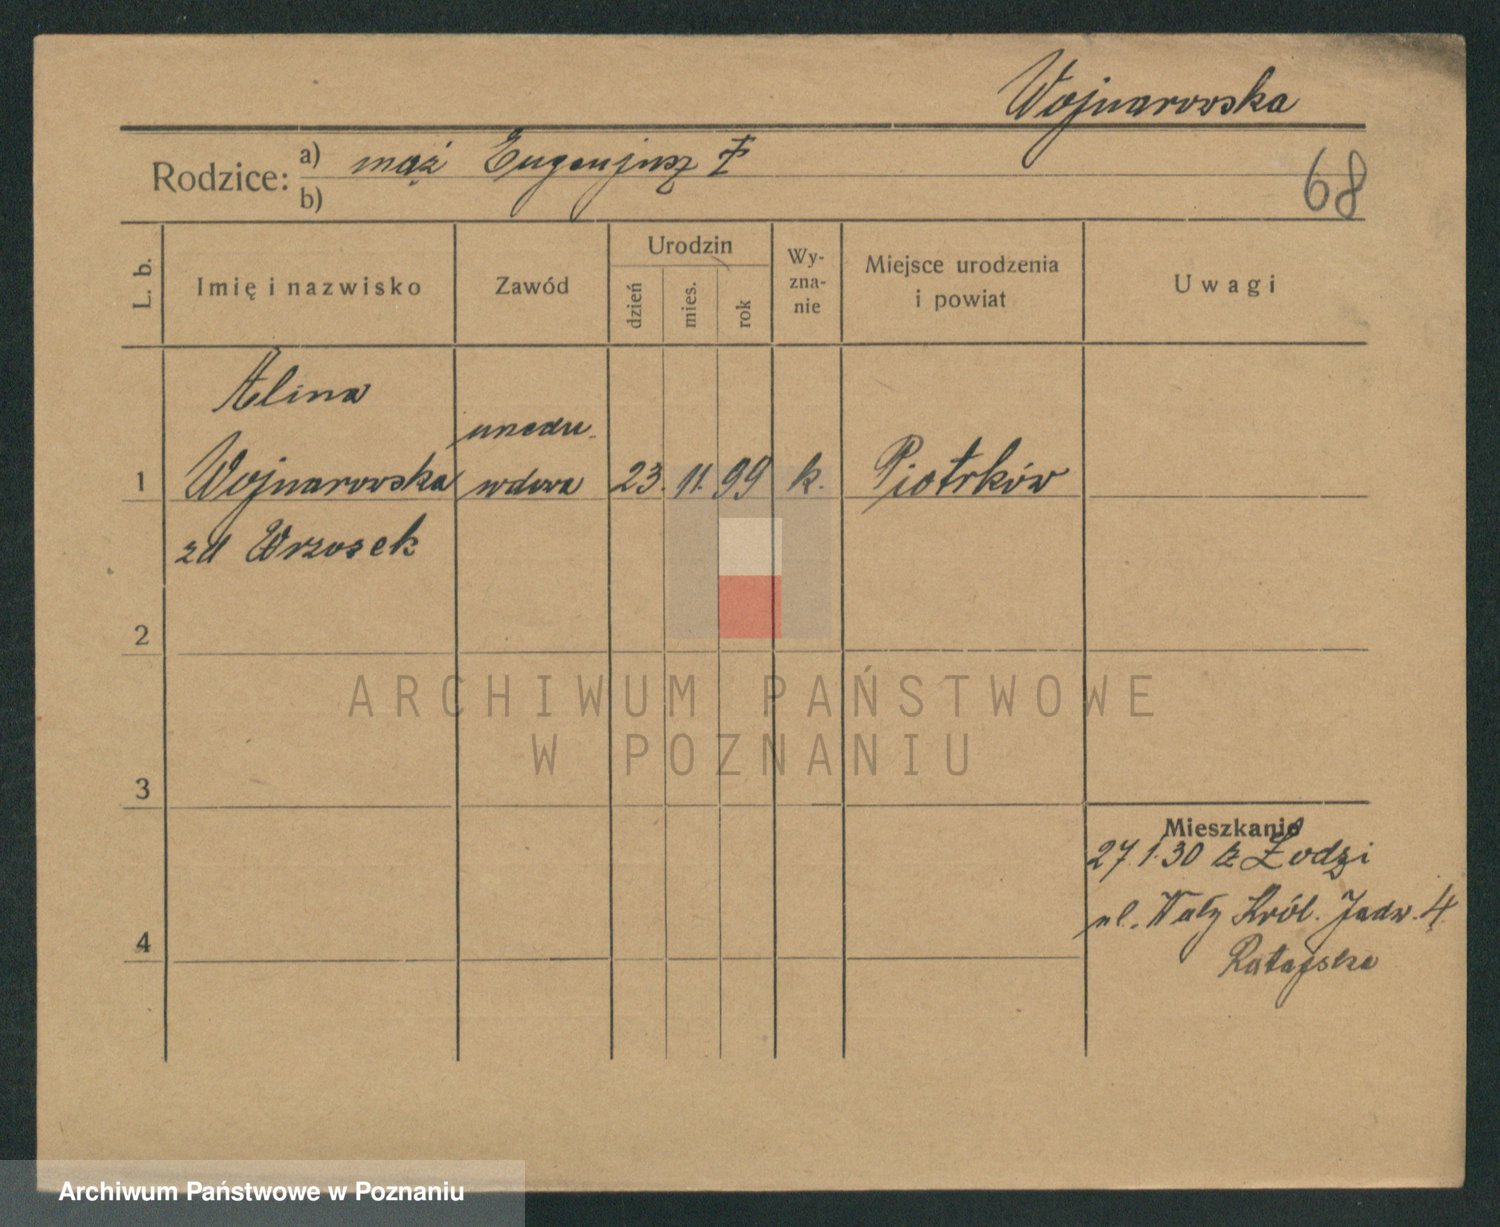 Wojnarowska
Rodzice:
a) mąż Eugenjusz
b)
68
L. b.
Imię i nazwisko
Zawód
Urodzin
dzień
mies.
rok
Wy-
zna-
nie
Miejsce urodzenia
i powiat
Uwagi
Alina
1 Wojnarowska wdowa 23. 11. 99 k. Piotrków
zd Wrzosek
2
3
4
Mieszkanie
27.1.30 z Łodzi
ul. Wały Król. Jadw. 4
Ratajska
ARCHIWUM PAŃSTWOWE
W POZNANIU
Archiwum Państwowe w Poznaniu